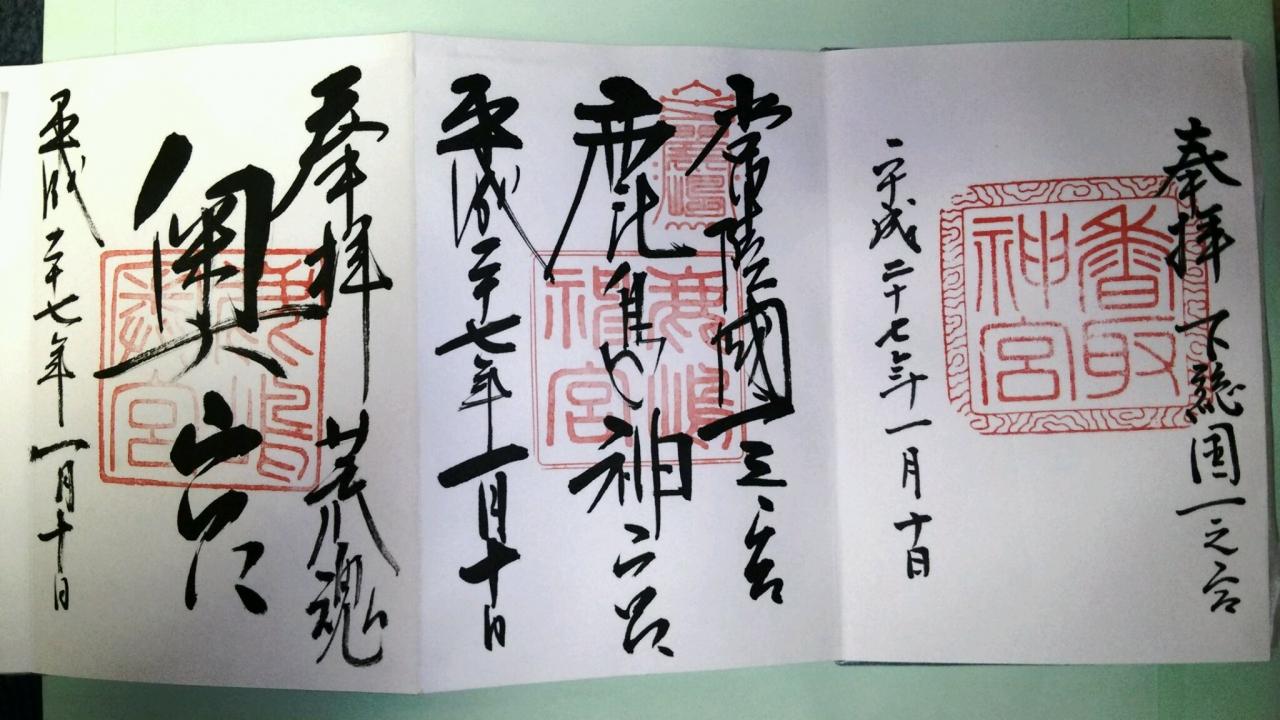 奉拝 下総国一之宮
香取神宮
平成二十七年一月十日
常陸國一之宮
鹿島神宮
鹿嶋神宮
平成二十七年一月十日
奉拝 荒魂
奥宮
鹿嶋
奥宮
平成二十七年一月十日